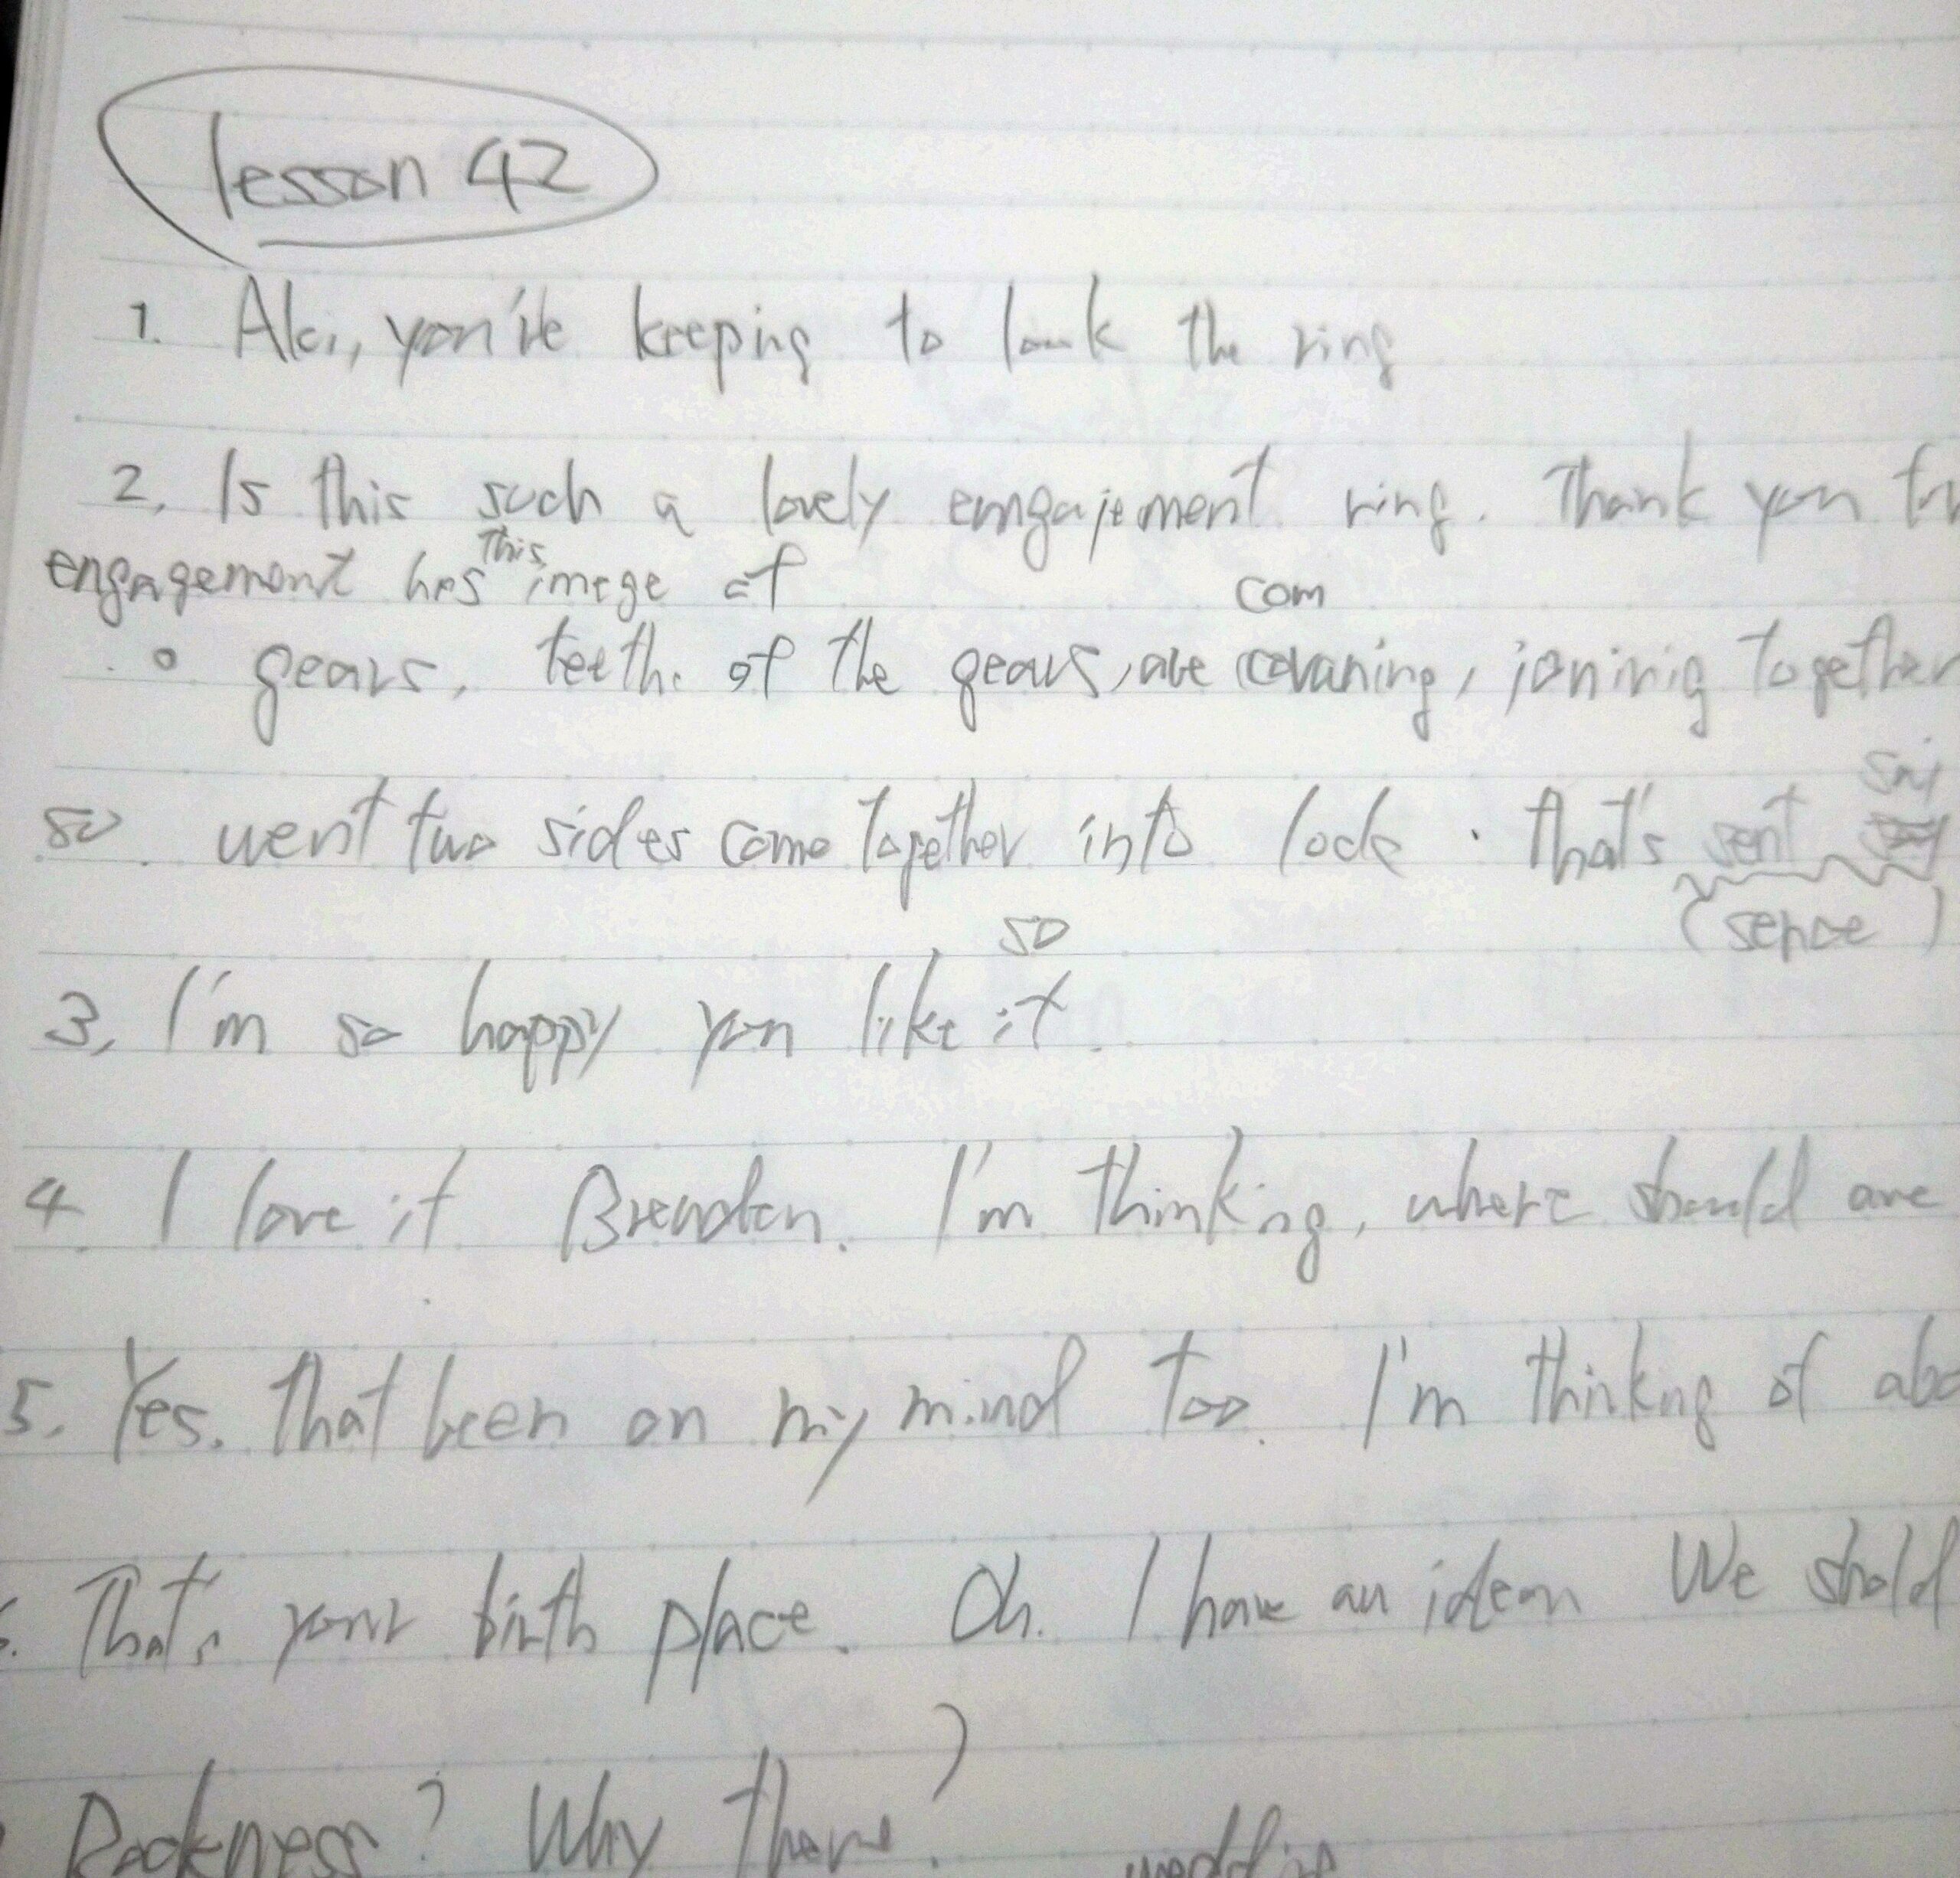 lesson 42
1. Aki, you're keeping to look the ring
2. Is this such a lovely emgajement ring. Thank you
engagement has this image of
com
gears, teeth of the gears, are covaning, joninig together
so went two sides come together into lock. that's sent
(sence)
so
3, I'm so happy you like it.
4 I love it Brendan. I'm thinking, where should are
5. Yes. That been on my mind too. I'm thinkng of
That's your birth place. Oh. I have an idea We shold
Rockness? Why there?
wedding